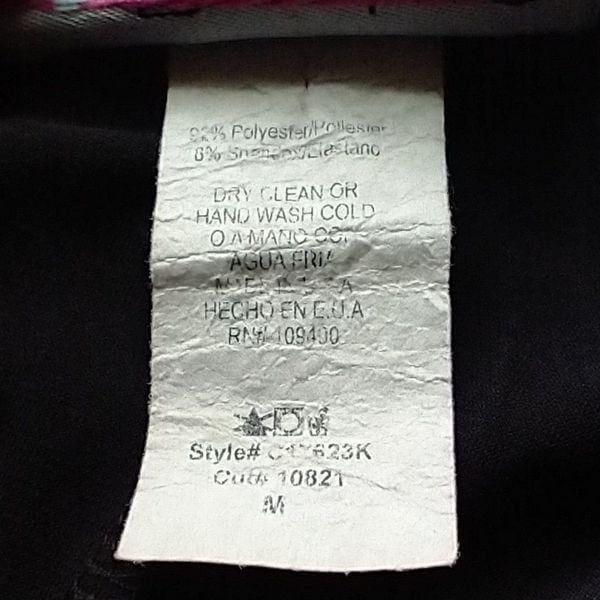 92% Polyester/Poliester
8% Spandex/Elastano
DRY CLEAN OR
HAND WASH COLD
O A MANO CON
AGUA FRIA
MADE IN U.S.A
HECHO EN E.U.A
RN# 109400
Style#
Cut# 10821
M